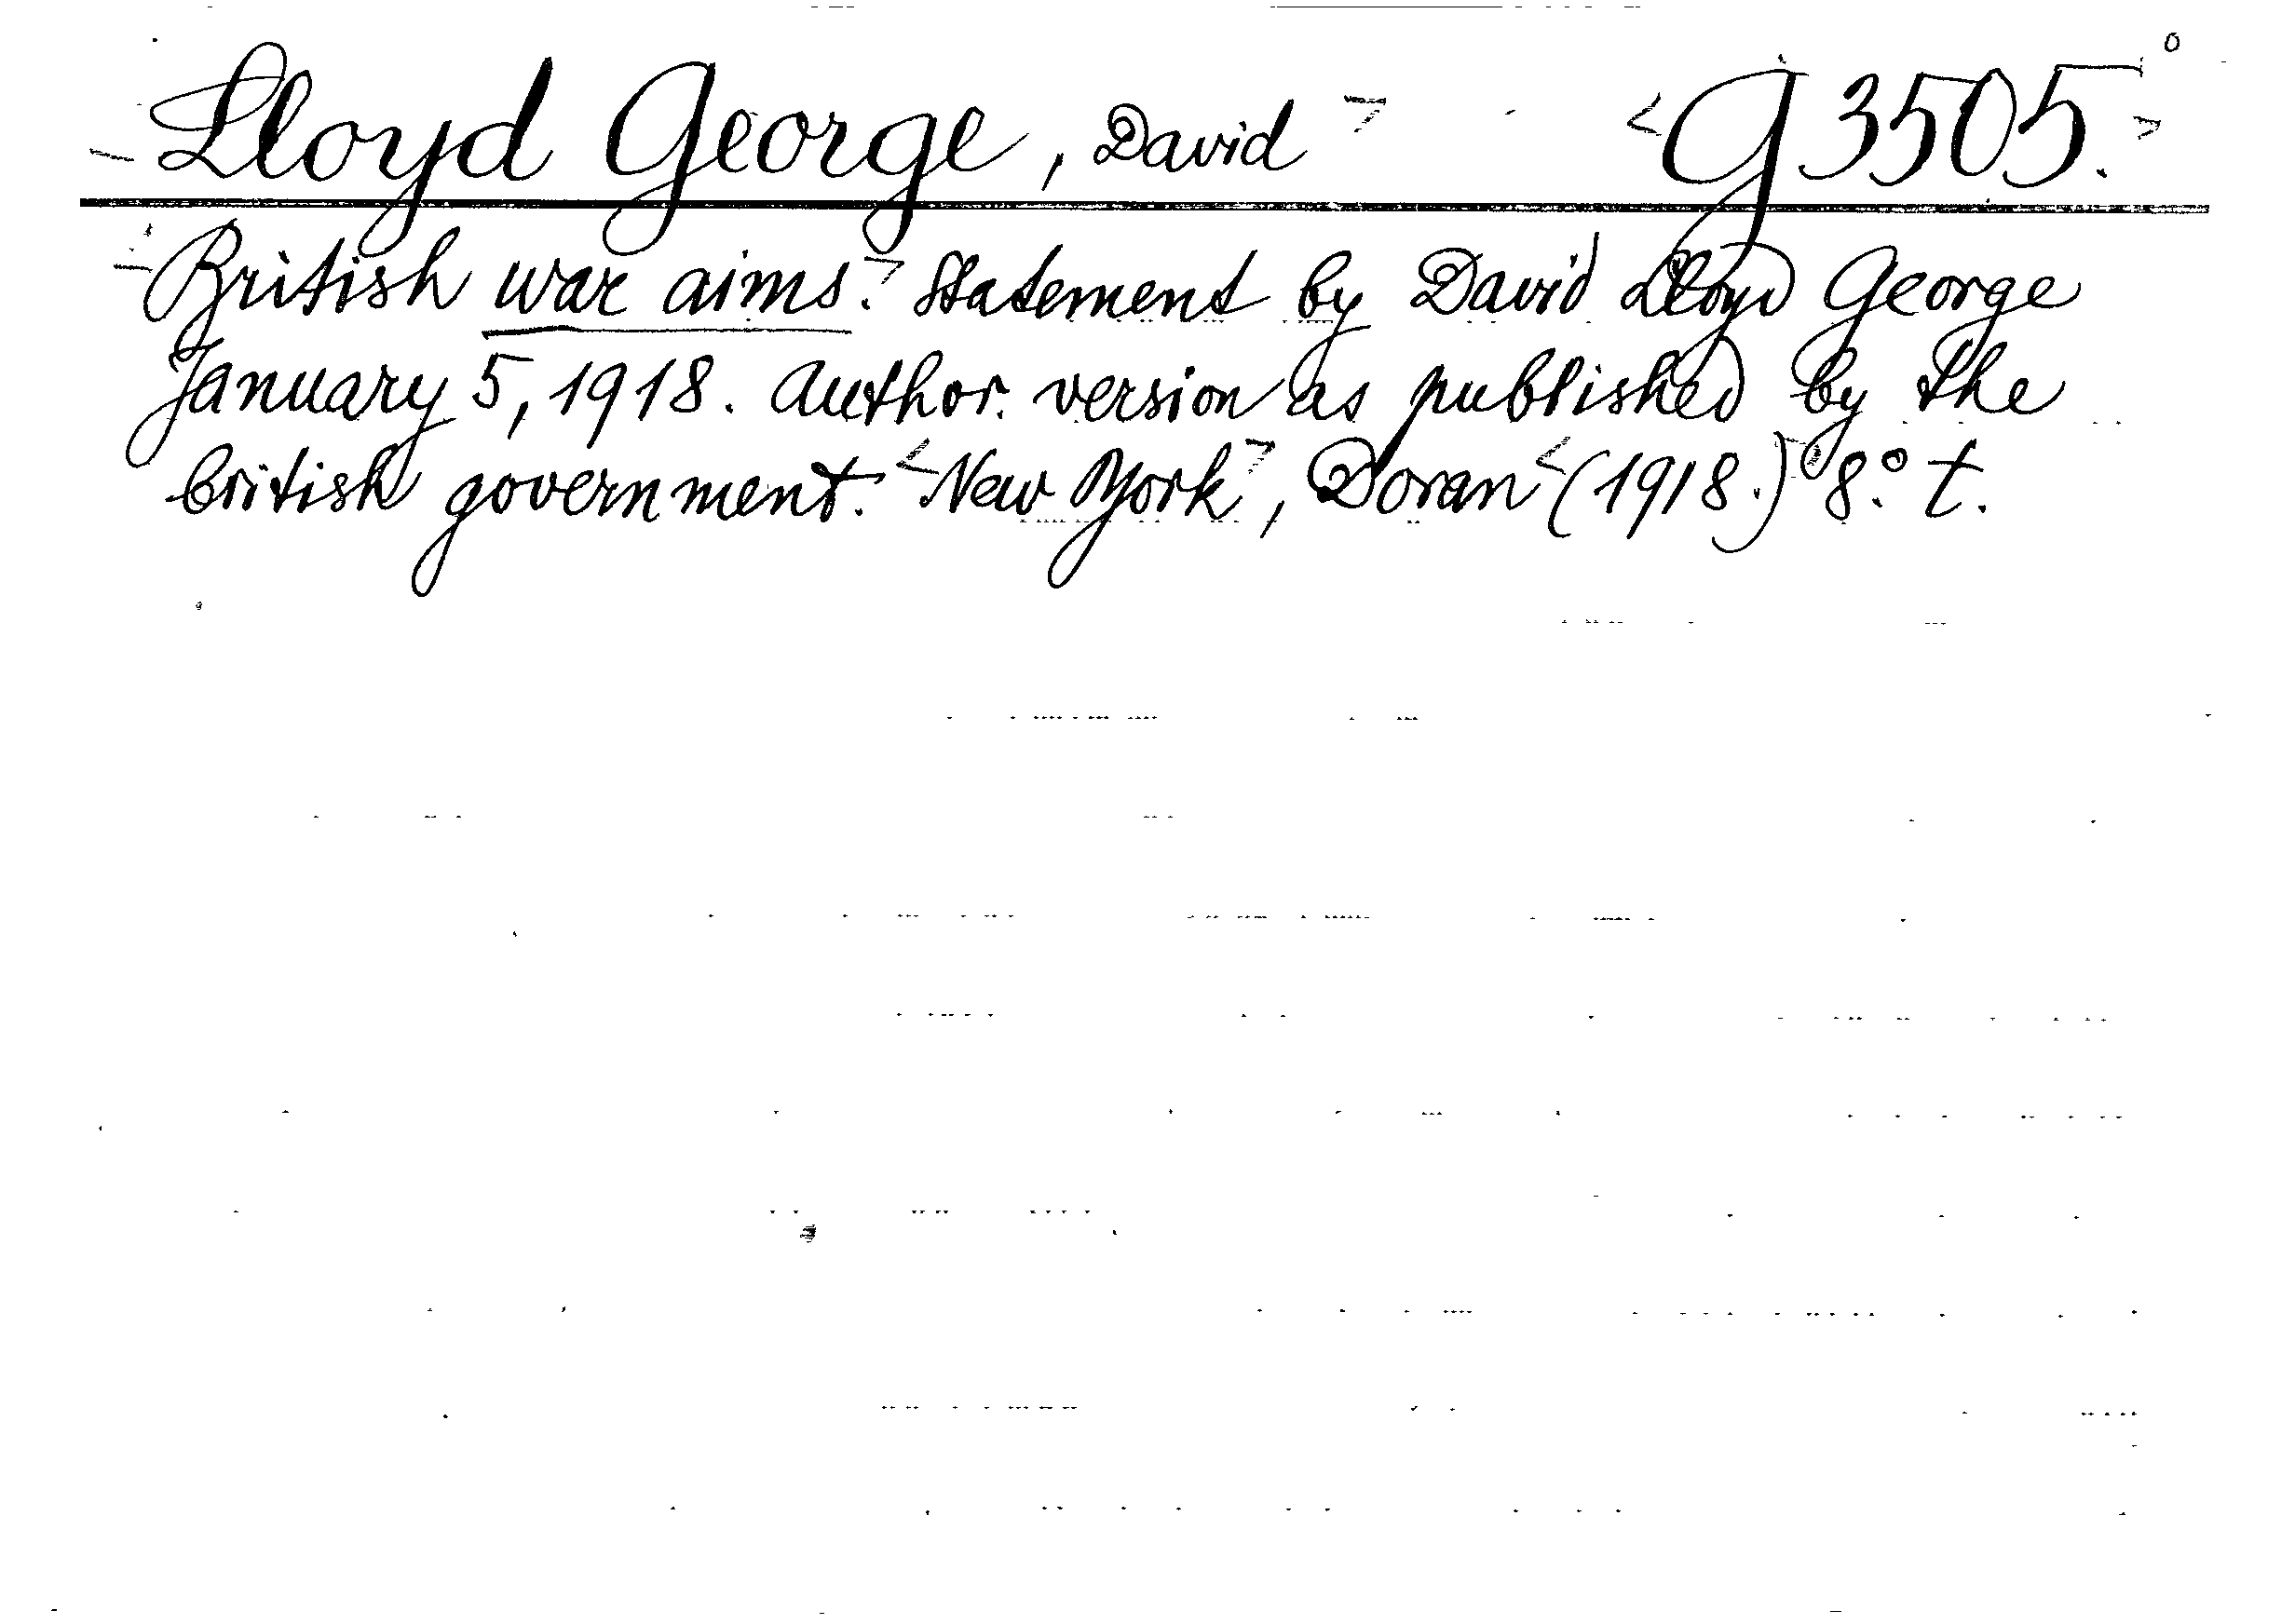 Lloyd George, David G 3505.
British war aims. Statement by David Lloyd George
January 5, 1918. Author. version as published by the
british government. New York, Doran (1918.) 8.° t.